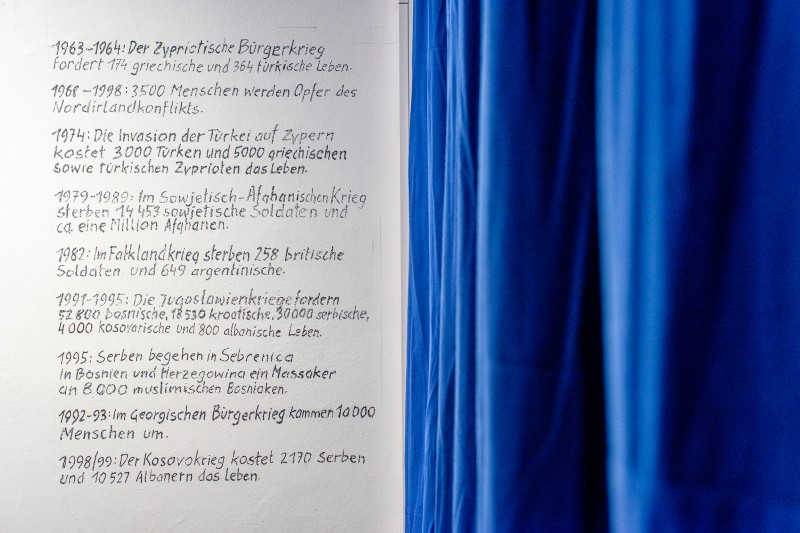 1963-1964: Der Zypriotische Bürgerkrieg
fordert 174 griechische und 364 türkische Leben.
1968-1998: 3500 Menschen werden Opfer des
Nordirlandkonflikts.
1974: Die Invasion der Türkei auf Zypern
kostet 3000 Türken und 5000 griechischen
sowie türkischen Zyprioten das Leben.
1979-1989: Im Sowjetisch-Afghanischen Krieg
sterben 14 453 sowjetische Soldaten und
ca. eine Million Afghanen.
1982: Im Falklandkrieg sterben 258 britische
Soldaten und 649 argentinische.
1991-1995: Die Jugoslawienkriege fordern
52 800 bosnische, 18 530 kroatische, 30 000 serbische,
4 000 kosovarische und 800 albanische Leben.
1995: Serben begehen in Sebrenica
in Bosnien und Herzegowina ein Massaker
an 8 000 muslimischen Bosniaken.
1992-93: Im Georgischen Bürgerkrieg kommen 10 000
Menschen um.
1998/99: Der Kosovokrieg kostet 2 170 Serben
und 10 527 Albanern das Leben.